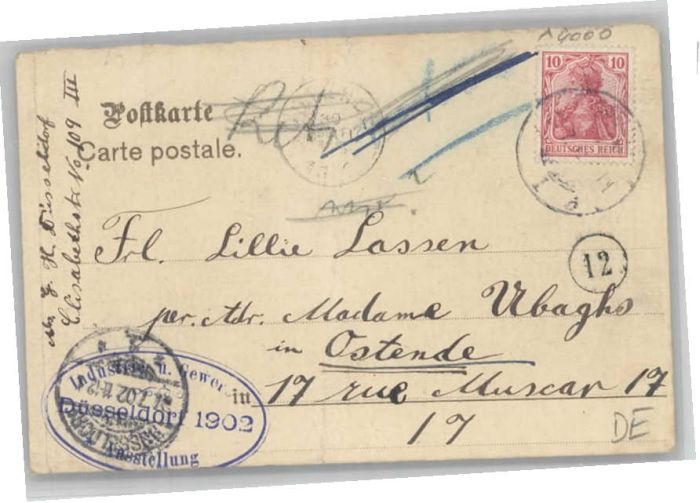 10 10
DEUTSCHES REICH
Postkarte
Carte postale.
H. Düsseldorf
Elisabethstr No 109 III
Frl. Lillie Lassen
per. Adr. Madame Ubaghs
in Ostende
17 rue Muscar 17
17
12
Industrie u. Gewer
Düsseldorf 1902
Ausstellung
DE